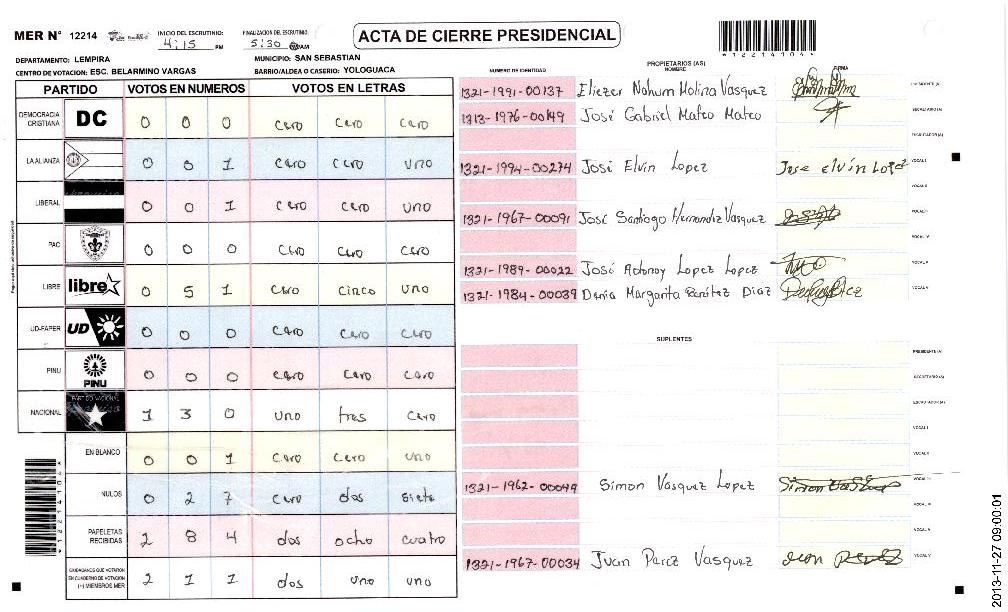 MER N° 12214 INICIO DEL ESCRUTINIO: 4:15 PM FINALIZACION DEL ESCRUTINIO: 5:30 AM
ACTA DE CIERRE PRESIDENCIAL
DEPARTAMENTO: LEMPIRA MUNICIPIO: SAN SEBASTIAN
CENTRO DE VOTACION: ESC. BELARMINO VARGAS BARRIO/ALDEA O CASERIO: YOLOGUACA
PARTIDO VOTOS EN NUMEROS VOTOS EN LETRAS
DEMOCRACIA CRISTIANA DC 0 0 0 cero cero cero
LA ALIANZA 0 0 1 cero cero uno
LIBERAL 0 0 1 cero cero uno
PAC 0 0 0 cero cero cero
LIBRE libre 0 5 1 cero cinco uno
UD-FAPER UD 0 0 0 cero cero cero
PINU PINU 0 0 0 cero cero cero
NACIONAL PARTIDO NACIONAL 1 3 0 uno tres cero
EN BLANCO 0 0 1 cero cero uno
NULOS 0 2 7 cero dos siete
PAPELETAS RECIBIDAS 2 8 4 dos ocho cuatro
CIUDADANOS QUE VOTARON EN CUADERNO DE VOTACION (+) MIEMBROS MER 2 1 1 dos uno uno
PROPIETARIOS (AS)
NUMERO DE IDENTIDAD NOMBRE FIRMA
1321-1991-00137 Eliezer Nahum Molina Vasquez PRESIDENTE (A)
1313-1976-00149 José Gabriel Mateo Mateo SECRETARIO (A)
ESCRUTADOR (A)
1321-1994-00274 José Elvin Lopez Jose elvin Lopez VOCAL I
VOCAL II
1321-1967-00091 José Santiago Hernandez Vasquez VOCAL III
VOCAL IV
1321-1989-00022 José Adonay Lopez Lopez VOCAL V
1321-1984-00039 Denia Margarita Benitez Diaz
SUPLENTES
PRESIDENTE (A)
SECRETARIO (A)
ESCRUTADOR (A)
VOCAL I
VOCAL II
1321-1962-00049 Simon Vasquez Lopez VOCAL III
VOCAL IV
VOCAL V
1321-1967-00034 Juan Perez Vasquez
2013-11-27 09:00:01